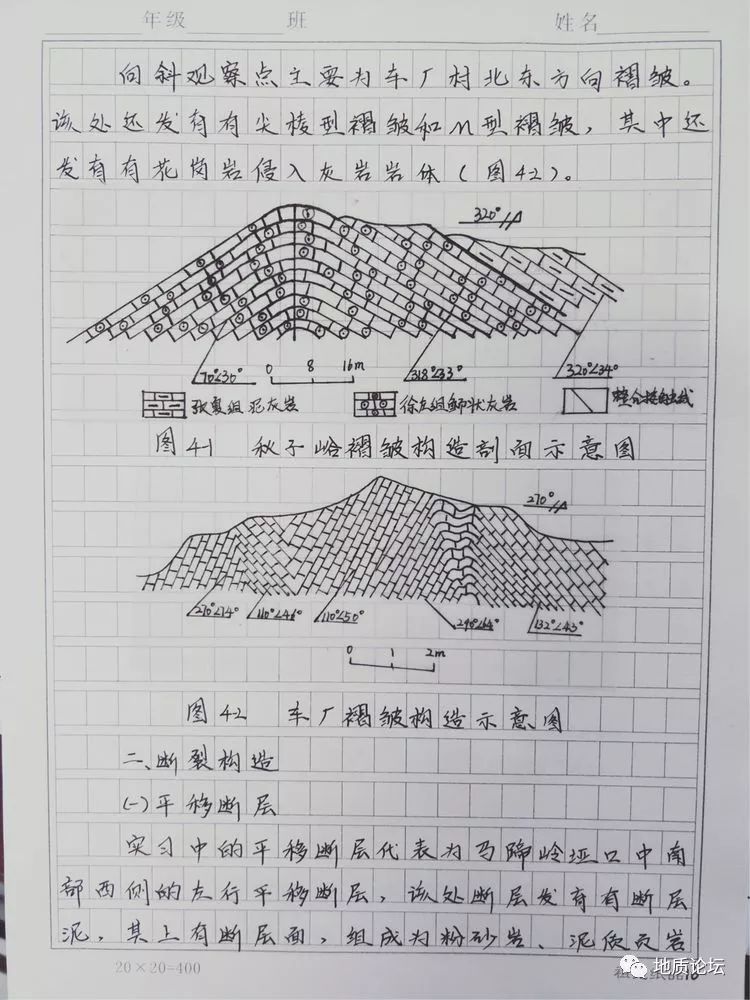 年级 班 姓名
向斜观察点主要为车厂村北东方向褶皱。
该处还发育有尖棱型褶皱和M型褶皱，其中还
发育有花岗岩侵入灰岩岩体（图4-2）。
320°
70°∠30° 0 8 16m 318°∠33° 320°∠34°
张夏组泥灰岩 徐庄组鲕状灰岩
图4-1 秋子峪褶皱构造剖面示意图
270°
270°∠74° 110°∠48° 110°∠50° 290°∠64° 132°∠43°
0 1 2m
图4-2 车厂褶皱构造示意图
二、断裂构造
(一)平移断层
实习中的平移断层代表为马蹄岭垭口中南
部西侧的左行平移断层，该处断层发育有断层
泥，其上有断层面，组成为粉砂岩、泥灰岩
20×20=400
地质论坛